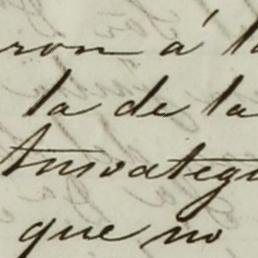 ron á la
la de la
Ansoategu
que no